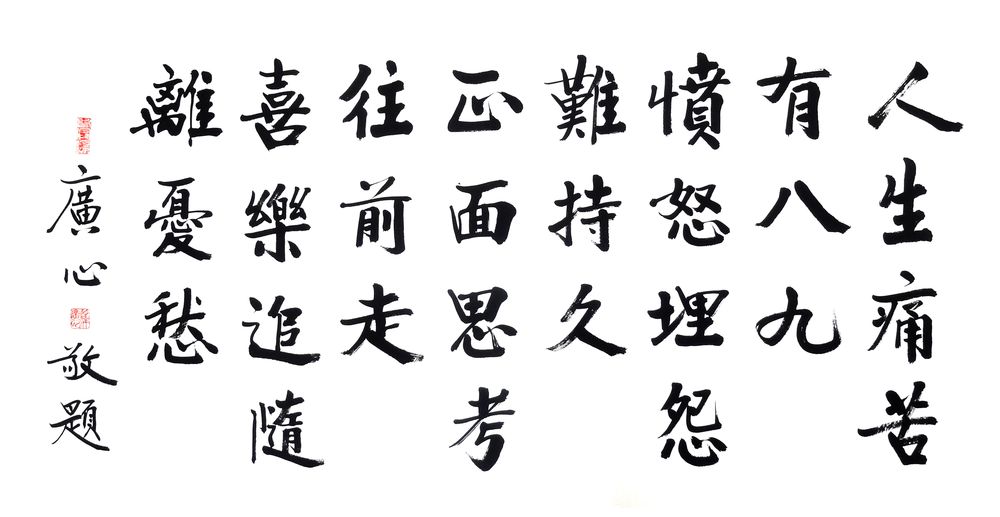 人生痛苦
有八九
憤怒埋怨
難持久
正面思考
往前走
喜樂追隨
離憂愁
廣心敬題